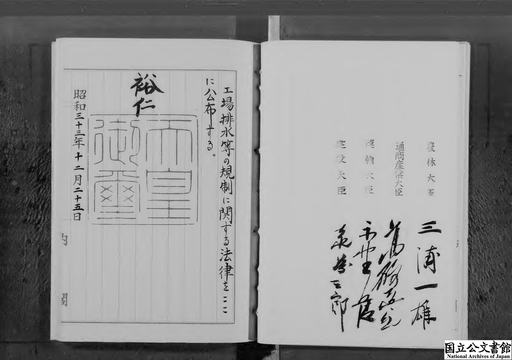 工場排水等の規制に関する法律をここ
に公布する。
裕仁
天皇
御璽
昭和三十三年十二月二十五日
内閣
農林大臣
三浦一雄
通商産業大臣
運輸大臣
建設大臣
国立公文書館
National Archives of Japan